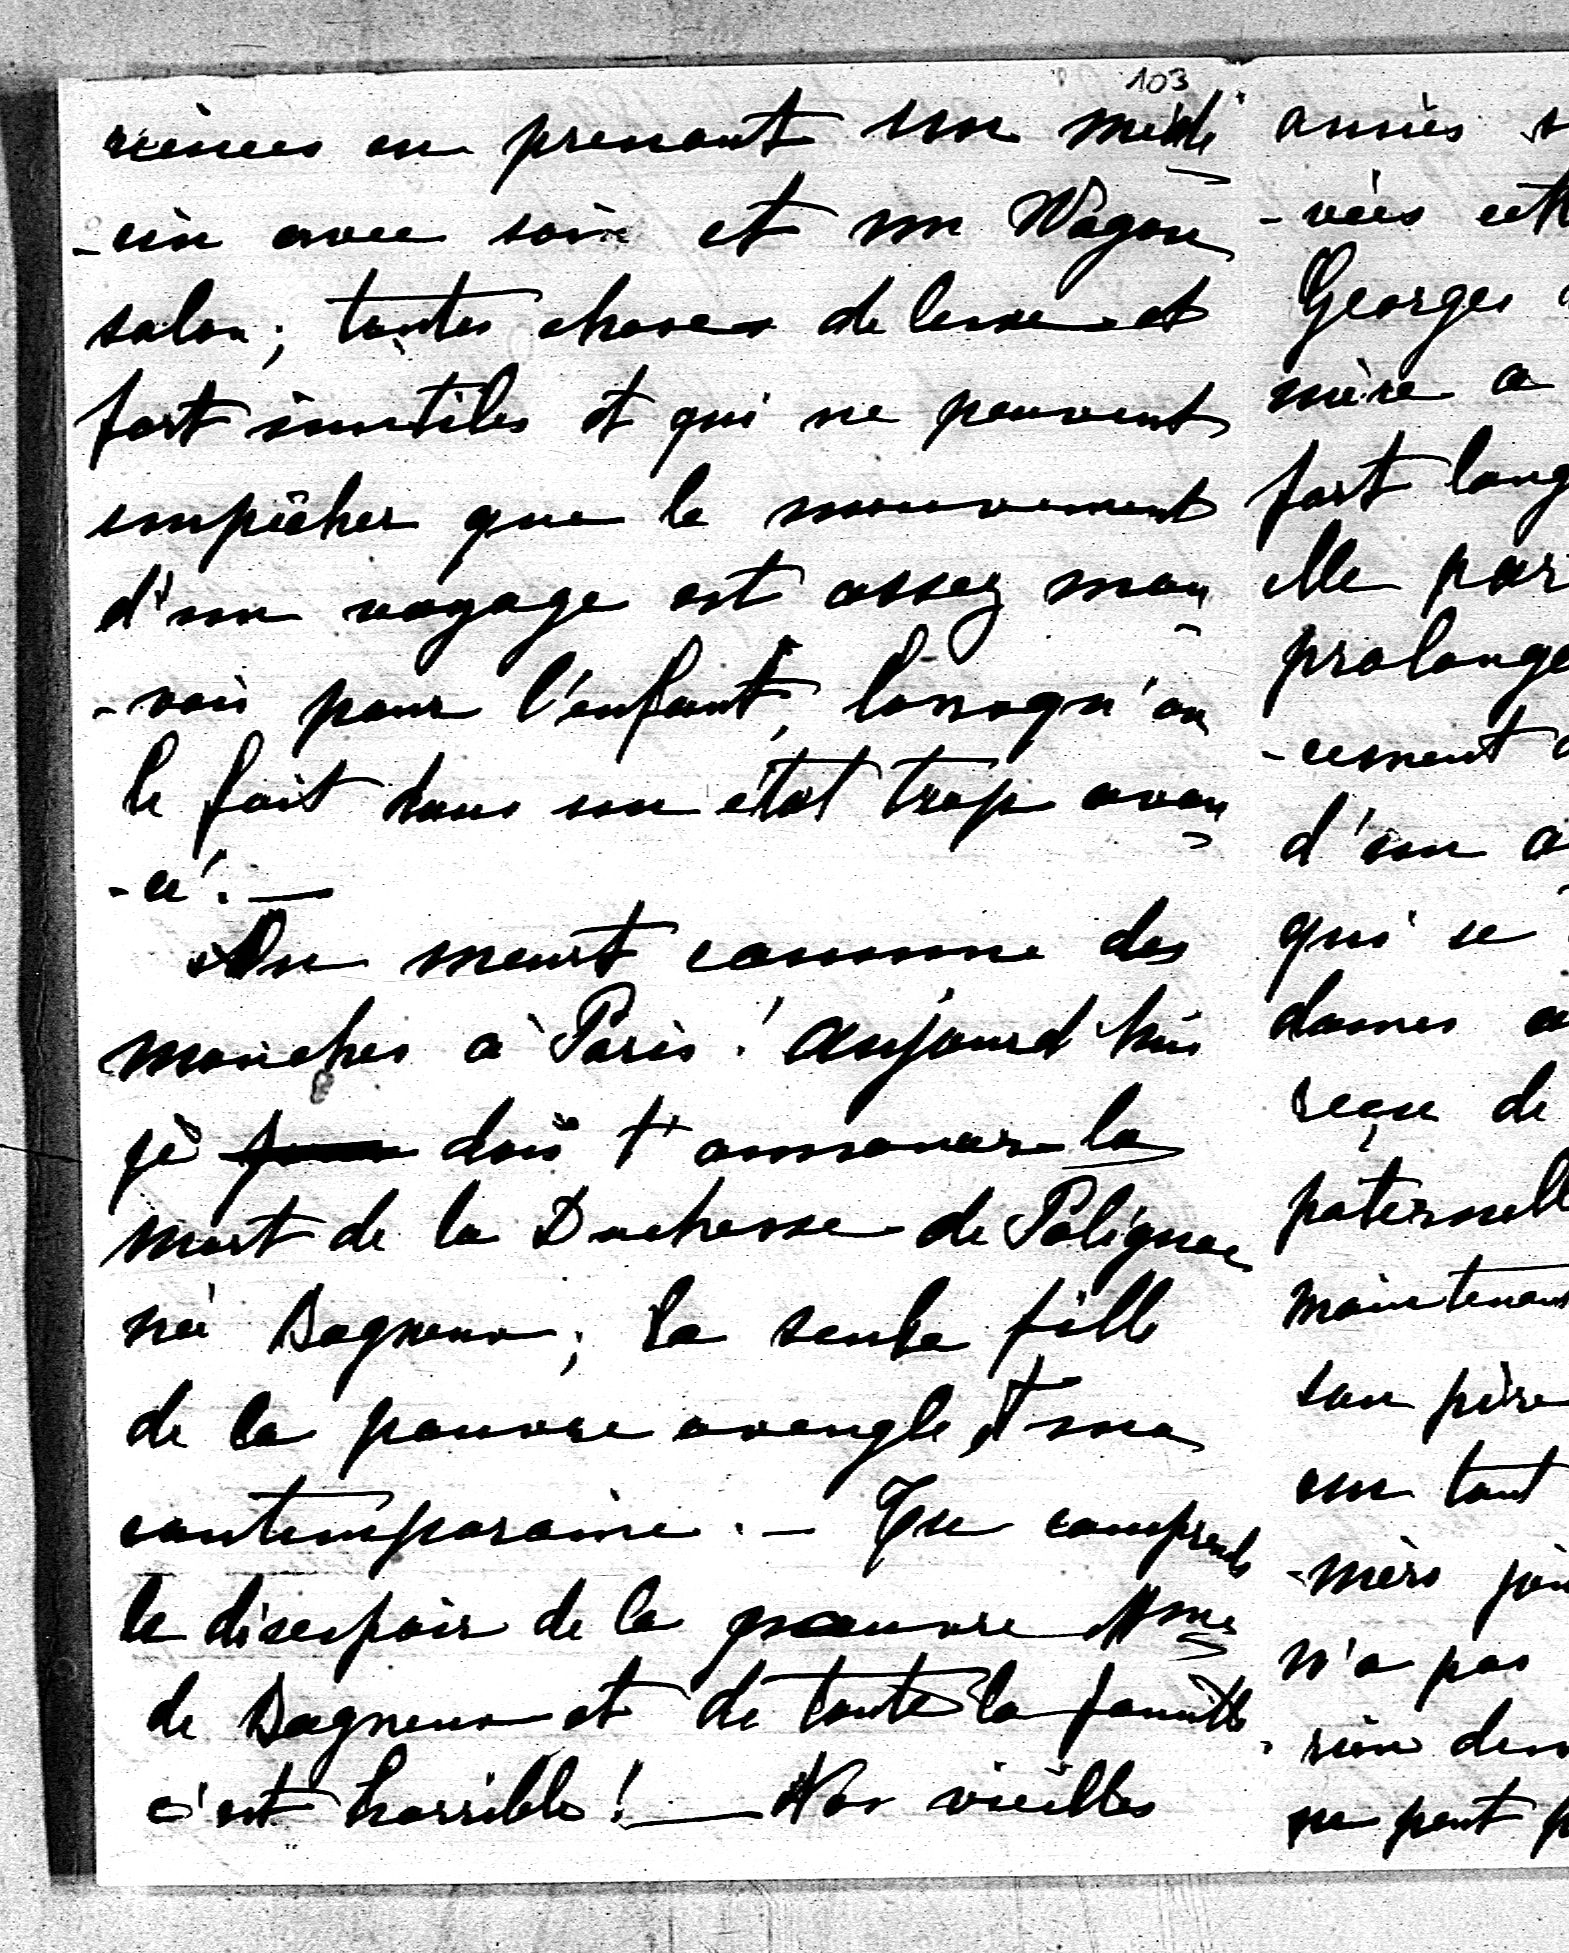 103
en prenant un méde
-cin avec soin et un Wagon
salon; toutes choses de luxe et
fort inutiles et qui ne peuvent
empêcher que le mouvement
d'un voyage est assez mau
-vais pour l'enfant, lorsqu'on
le fait dans un état trop avan
-cé. —
On meurt comme des
mouches à Paris! aujourd'hui
je dois t'annoncer la
mort de la Duchesse de Polignac
née Bagneux; la seule fille
de la pauvre aveugle, et ma
contemporaine. — Tu comprends
le désespoir de la pauvre Mme
de Bagneux et de toute la famille
c'est horrible! — Nos vieilles
années
-vées
Georges
mère a
fort long
elle par
prolonge
-cement
d'un a
qui se
dames a
reçu de
paternell
maintenant
son père
un tout
-mère
n'a pas
rien
ne peut p